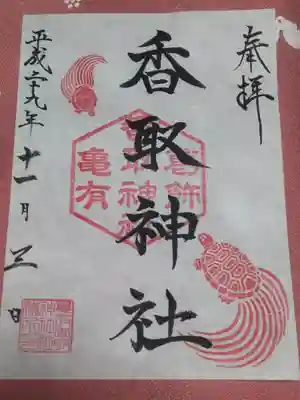 奉拝
香取神社
葛飾
香取神社
亀有
平成二十九年十一月三日